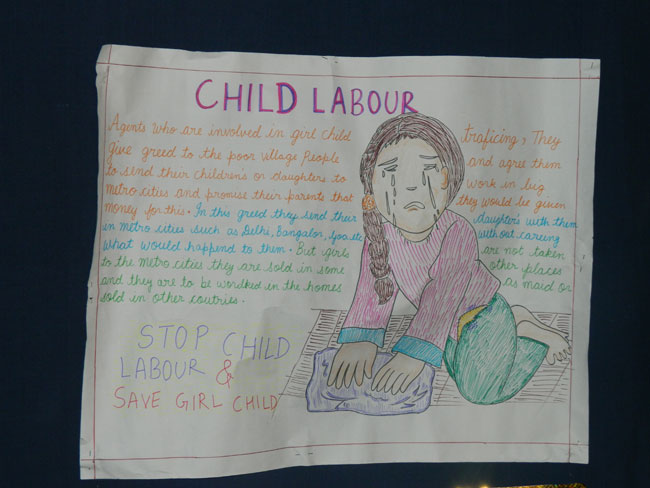 CHILD LABOUR
Agents who are involved in girl child traficing, They
give greed to the poor village People and agree them
to send their childrens or daughters to work in big
metro cities and promise their parents that they would be given
money for this. In this greed they send their daughters with them
in metro cities such as Delhi, Bangalor, Goa etc without careing
what would happend to them. But girls are not taken
to the metro cities they are sold in some other places
and they are to be worlked in the homes as maid or
sold in other coutries.
STOP CHILD
LABOUR &
SAVE GIRL CHILD